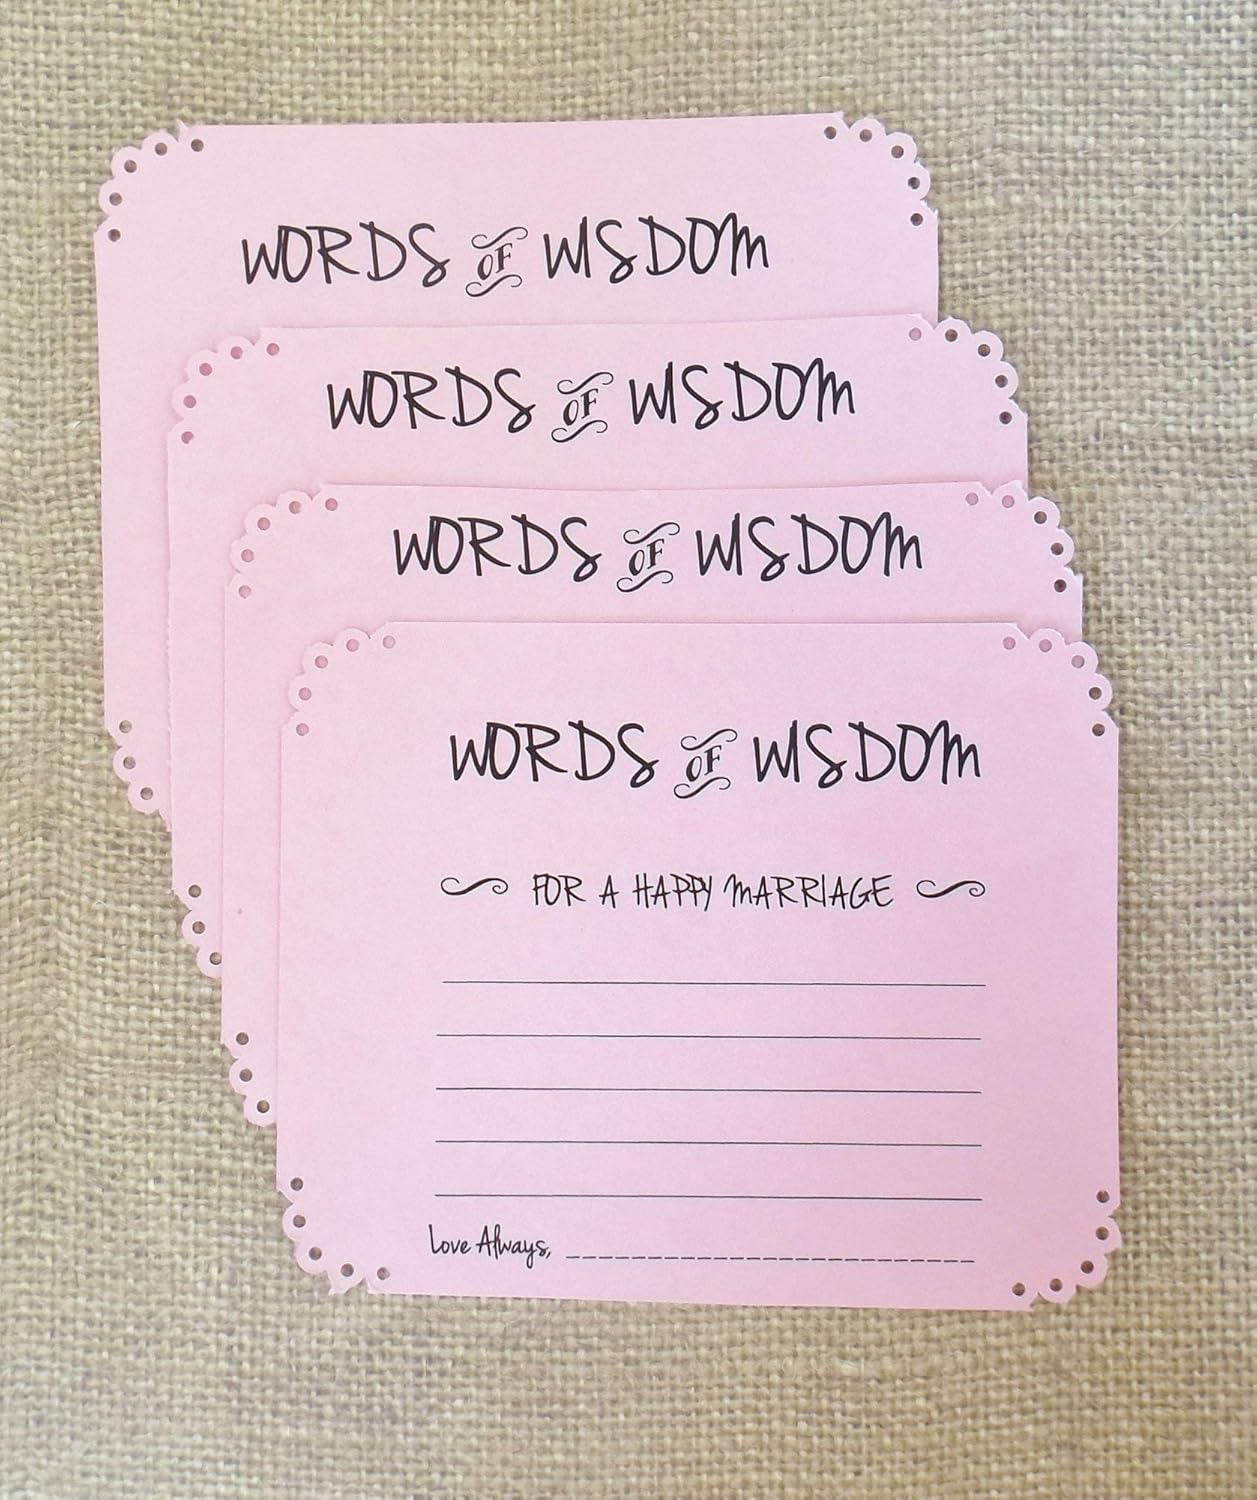 WORDS OF WISDOM
WORDS OF WISDOM
WORDS OF WISDOM
WORDS OF WISDOM
FOR A HAPPY MARRIAGE
Love Always,